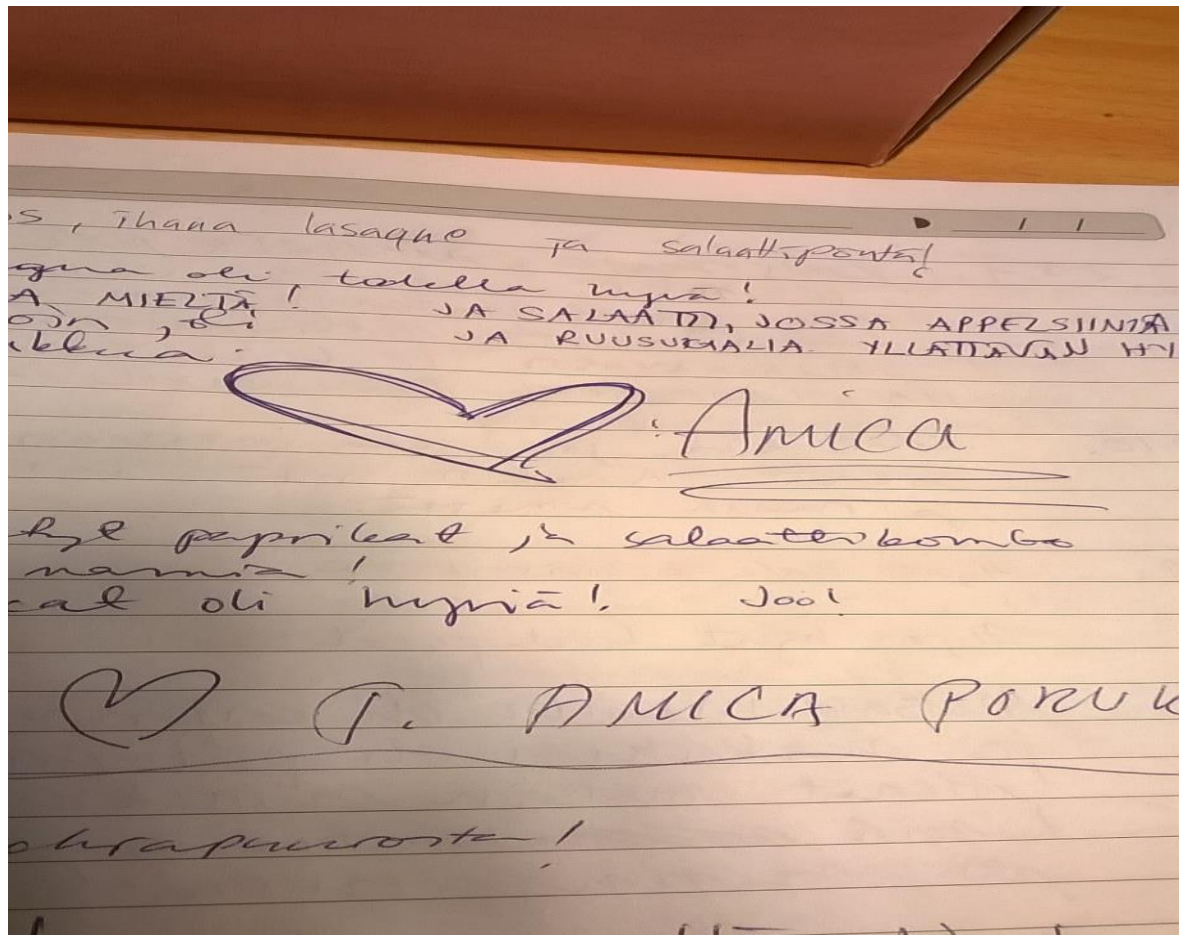 ihana lasagne ja salaattipöytä!
oli todella hyvä!
MIELTÄ! JA SALAATTI, JOSSA APPELSIINIA
JA RUUSUKAALIA YLLÄTTÄVÄN HY
: Amica
paprikat ja salaattikombo
namia!
oli hyviä! Joo!
T. AMICA PORUK
ohrapuurosta!